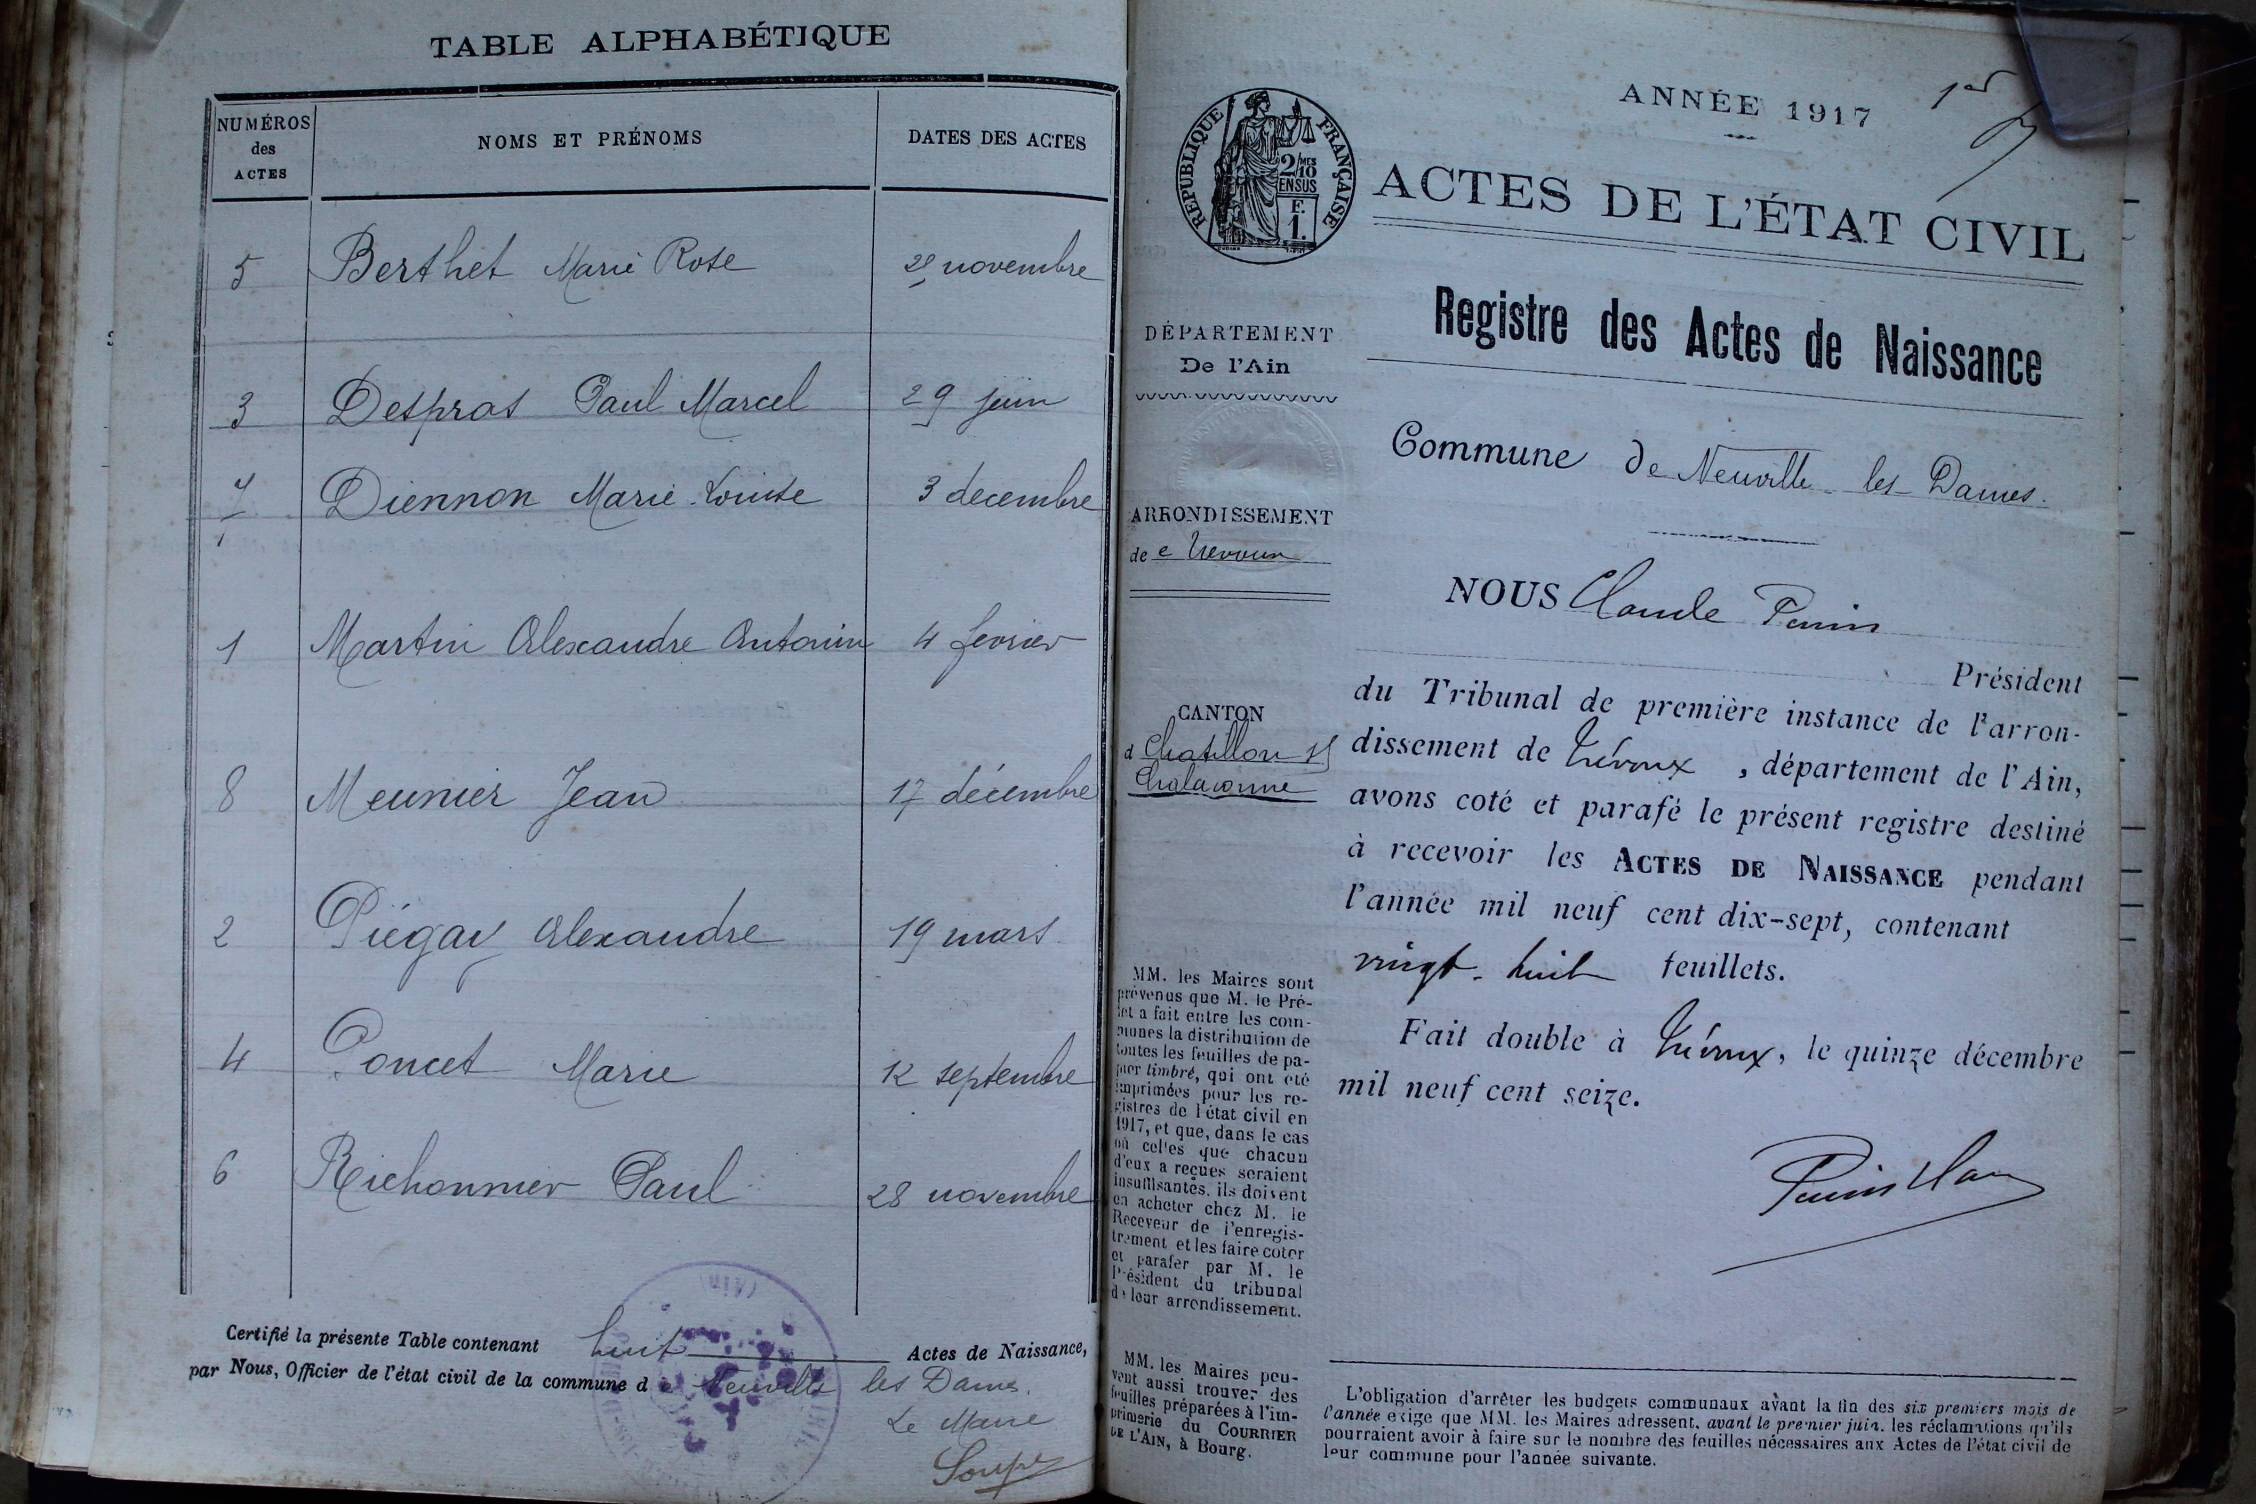 TABLE ALPHABÉTIQUE
NUMÉROS des ACTES
NOMS ET PRÉNOMS
DATES DES ACTES
5 Berthet Marie Rose novembre
3 Despras Paul Marcel 29 juin
7 Diennon Marie Louise 3 decembre
1 Martin Alexandre Antonin 4 fevrier
8 Meunier Jean 17 décembre
2 Piégay Alexandre 19 mars
4 Poncet Marie 12 septembre
6 Richonnier Paul 28 novembre
Certifié la présente Table contenant huit Actes de Naissance,
par Nous, Officier de l'état civil de la commune d e Neuville les Dames.
Le Maire
ANNÉE 1917
1er
RÉPUBLIQUE FRANÇAISE
2/10 MES
EN SUS
F.
1.
ACTES DE L'ÉTAT CIVIL
Registre des Actes de Naissance
DÉPARTEMENT
De l'Ain
Commune de Neuville les Dames.
ARRONDISSEMENT
de
CANTON
d Chatillon s/
Chalaronne
NOUS Claude
Président
du Tribunal de première instance de l'arron-
dissement de Trévoux, département de l'Ain,
avons coté et parafé le présent registre destiné
à recevoir les ACTES DE NAISSANCE pendant
l'année mil neuf cent dix-sept, contenant
vingt-huit feuillets.
Fait double à Trévoux, le quinze décembre
mil neuf cent seize.
MM. les Maires sont
prévenus que M. le Pré-
fet a fait entre les com-
munes la distribution de
toutes les feuilles de pa-
pier timbré, qui ont été
imprimées pour les re-
gistres de l'état civil en
1917, et que, dans le cas
où celles que chacun
d'eux a reçues seraient
insuffisantes, ils doivent
en acheter chez M. le
Receveur de l'enregis-
trement et les faire coter
et parafer par M. le
Président du tribunal
de leur arrondissement.
MM. les Maires peu-
vent aussi trouver des
feuilles préparées à l'im-
primerie du COURRIER
DE L'AIN, à Bourg.
L'obligation d'arrêter les budgets communaux avant la fin des six premiers mois de
l'année exige que MM. les Maires adressent, avant le premier juin, les réclamations qu'ils
pourraient avoir à faire sur le nombre des feuilles nécessaires aux Actes de l'état civil de
leur commune pour l'année suivante.